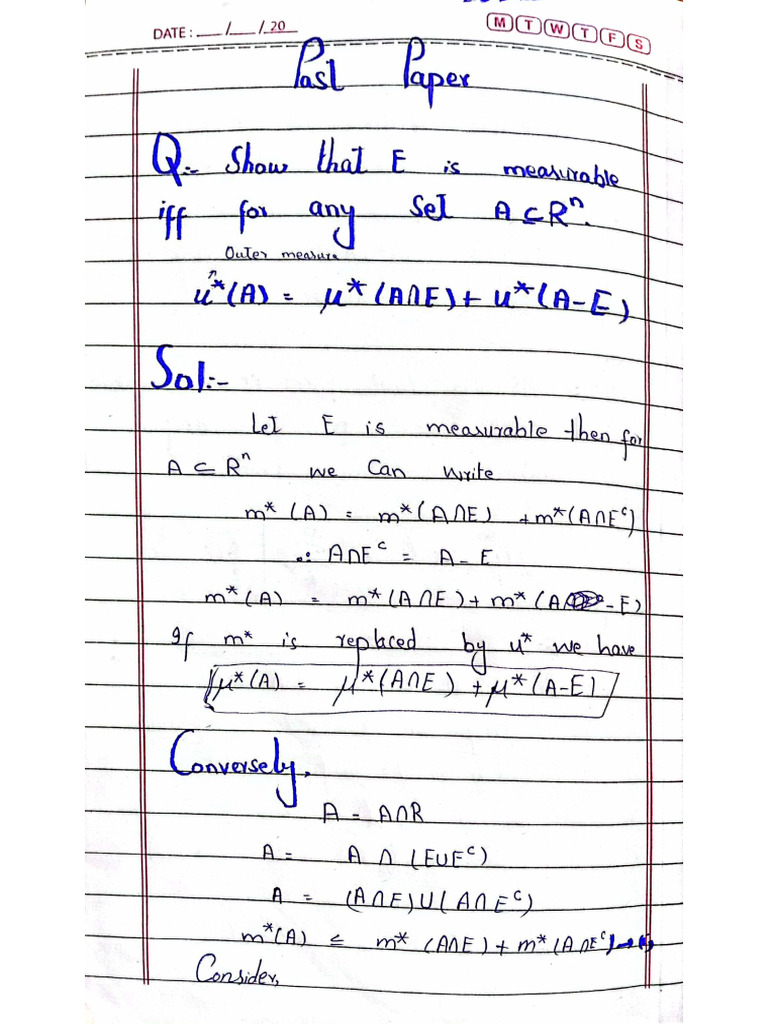 DATE: __/__/20
M T W T F S
Past Paper
Q:- Show that E is measurable
iff for any set A⊂Rⁿ.
Outer measure
u*(A) = μ*(A∩E) + u*(A-E)
Sol:-
Let E is measurable then for
A⊂Rⁿ we can write
m*(A) = m*(A∩E) + m*(A∩Eᶜ)
∴ A∩Eᶜ = A-E
m*(A) = m*(A∩E) + m*(A-E)
If m* is replaced by u* we have
μ*(A) = μ*(A∩E) + μ*(A-E)
Conversely,
A = A∩R
A = A∩(E∪Eᶜ)
A = (A∩E)∪(A∩Eᶜ)
m*(A) ≤ m*(A∩E) + m*(A∩Eᶜ)→(1)
Consider,